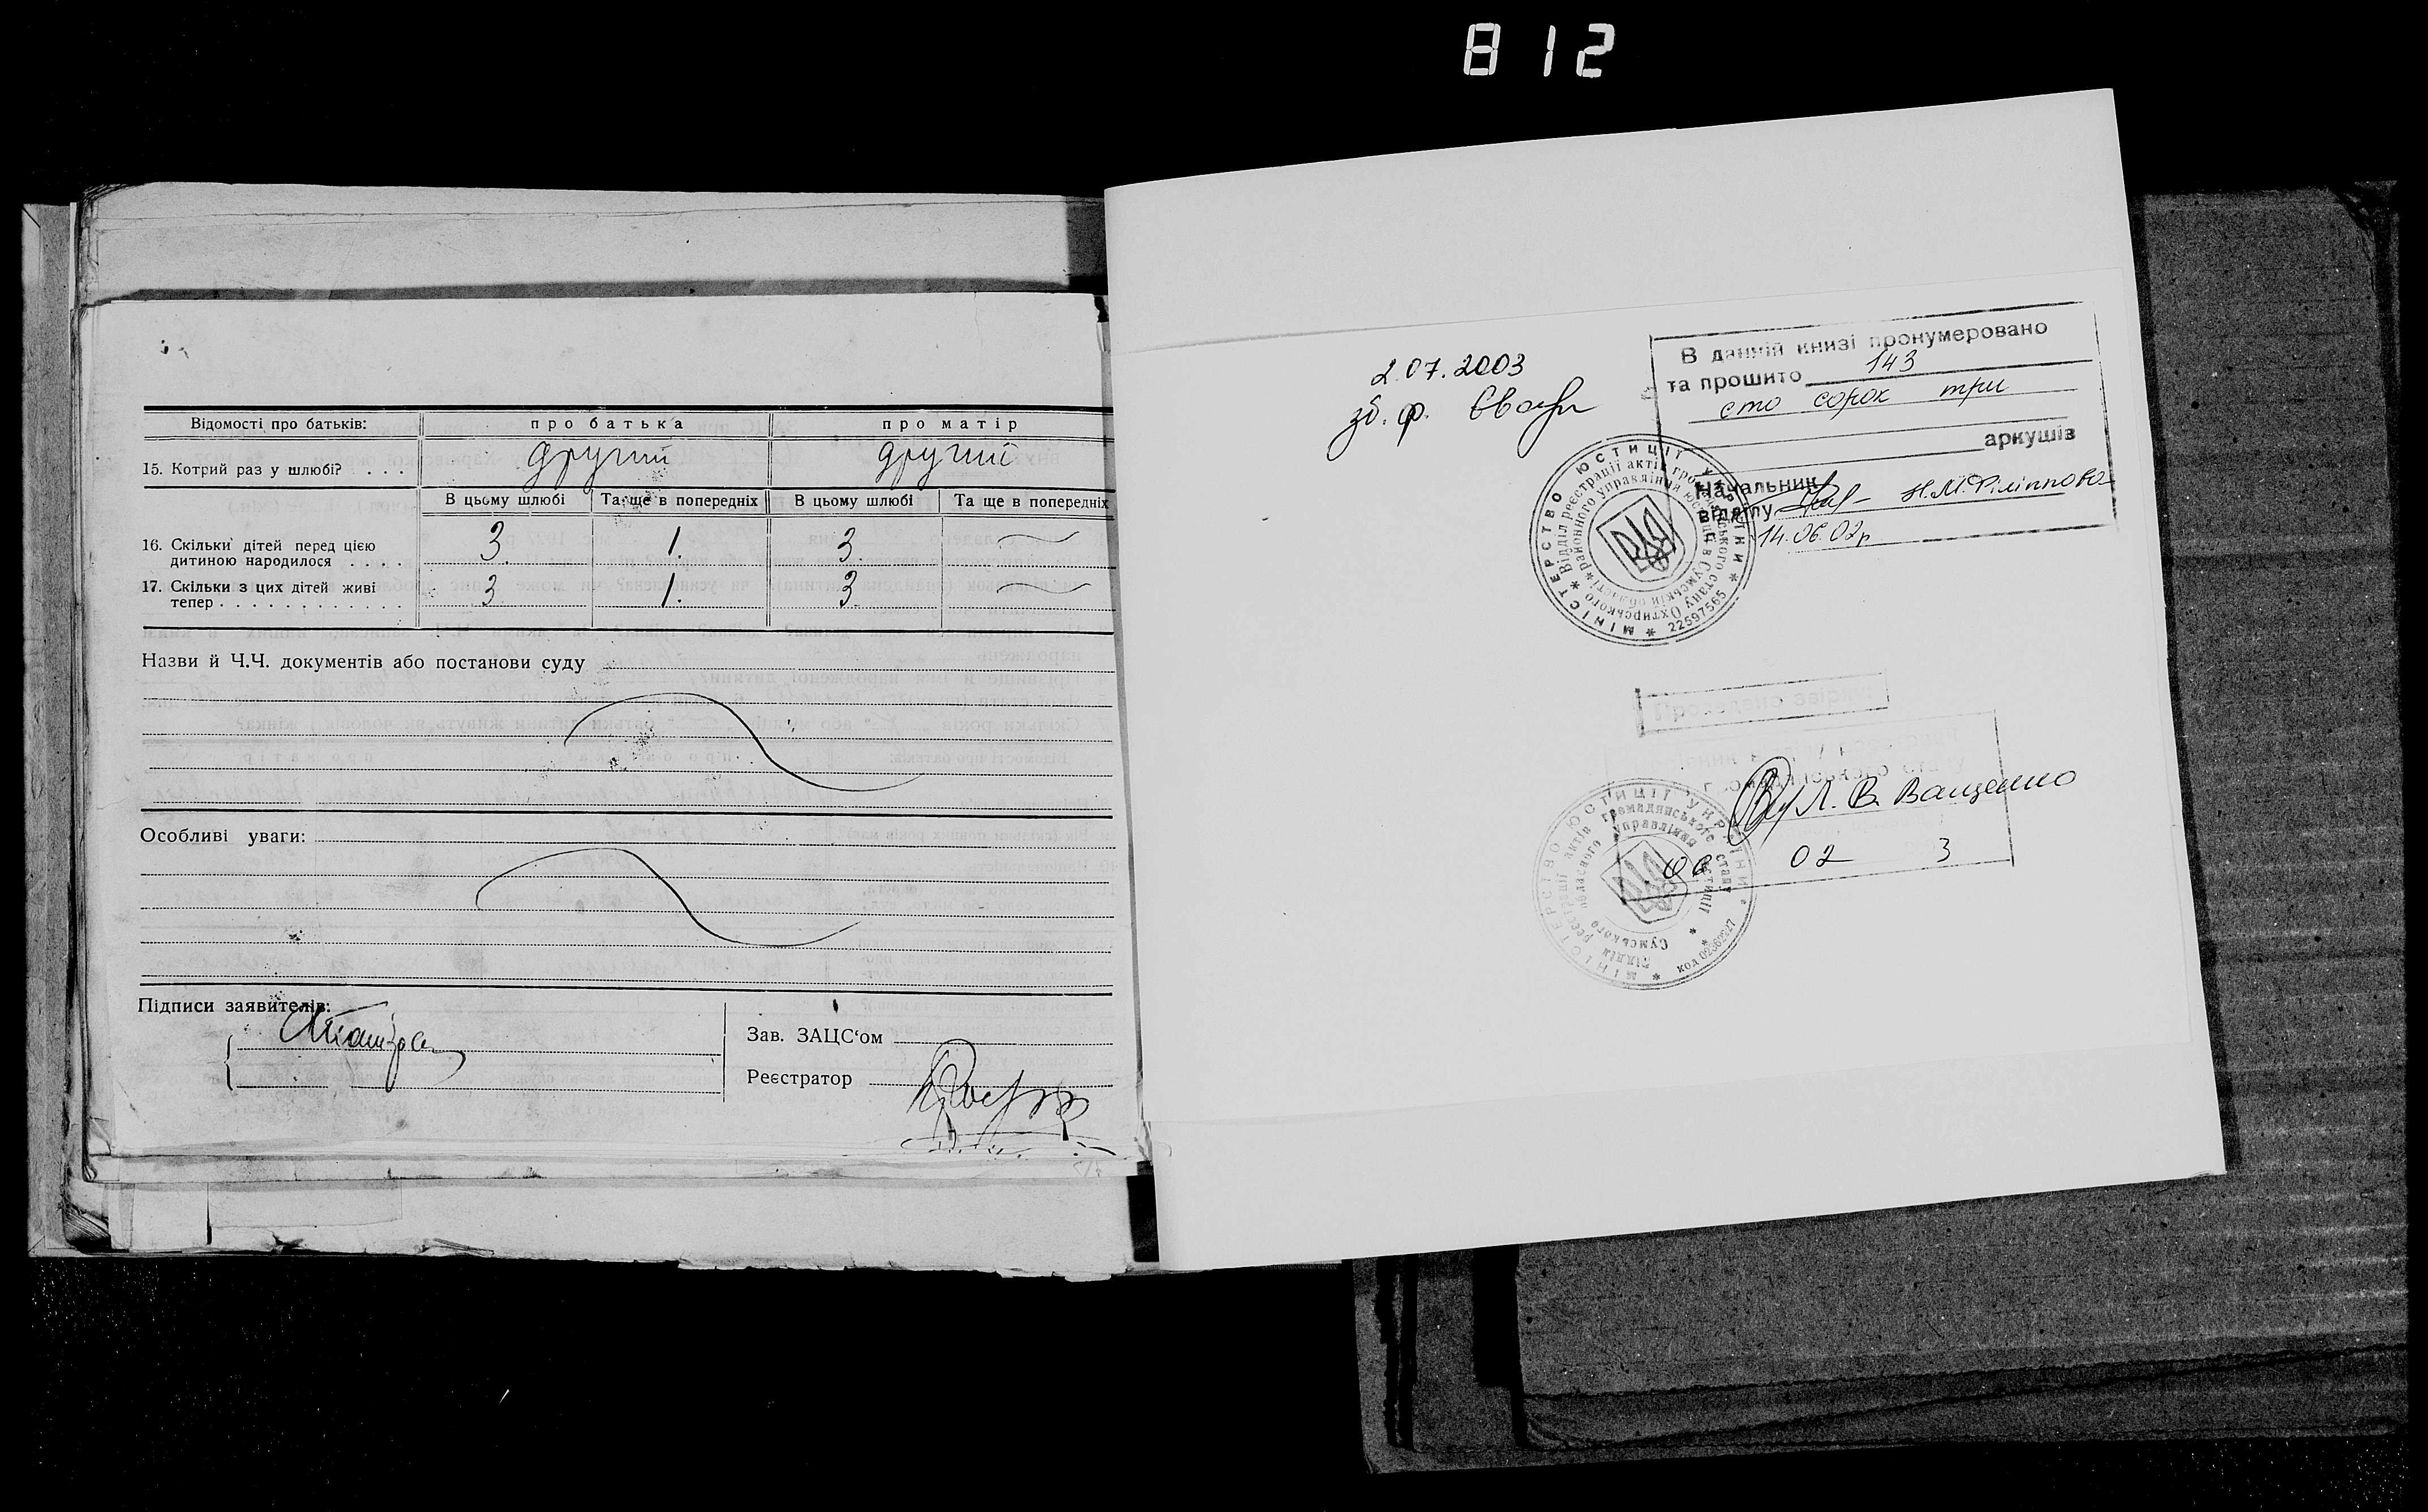 812
Відомості про батьків: про батька про матір
15. Котрий раз у шлюбі? . . . . другий другий
В цьому шлюбі Та ще в попередніх В цьому шлюбі Та ще в попередніх
16. Скільки дітей перед цією
дитиною народилося . . . . . 3. 1. 3.
17. Скільки з цих дітей живі
тепер . . . . . . . . . . . . . 3 1. 3.
Назви й Ч.Ч. документів або постанови суду
Особливі уваги:
Підписи заявителів:
Зав. ЗАЦС‘ом
Реєстратор
2.07.2003
зб. ф.
В данній книзі пронумеровано
та прошито 143
сто сорок три
аркушів
Начальник
відділу Н.М. Філіппова
14.06.02р
МІНІСТЕРСТВО ЮСТИЦІЇ УКРАЇНИ
Відділ реєстрації актів громадянського стану Охтирського
районного управління юстиції в Сумській області
22597565
Проведено звірку
громадянського стану
Л. В. Ващенко
06 02 3
МІНІСТЕРСТВО ЮСТИЦІЇ УКРАЇНИ
Відділ реєстрації актів громадянського стану
Сумського обласного управління юстиції
код